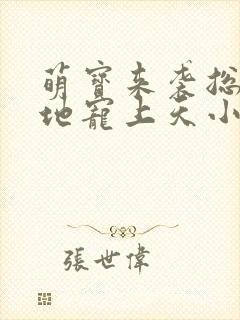 萌寶來襲總
地寵上天小
張世偉